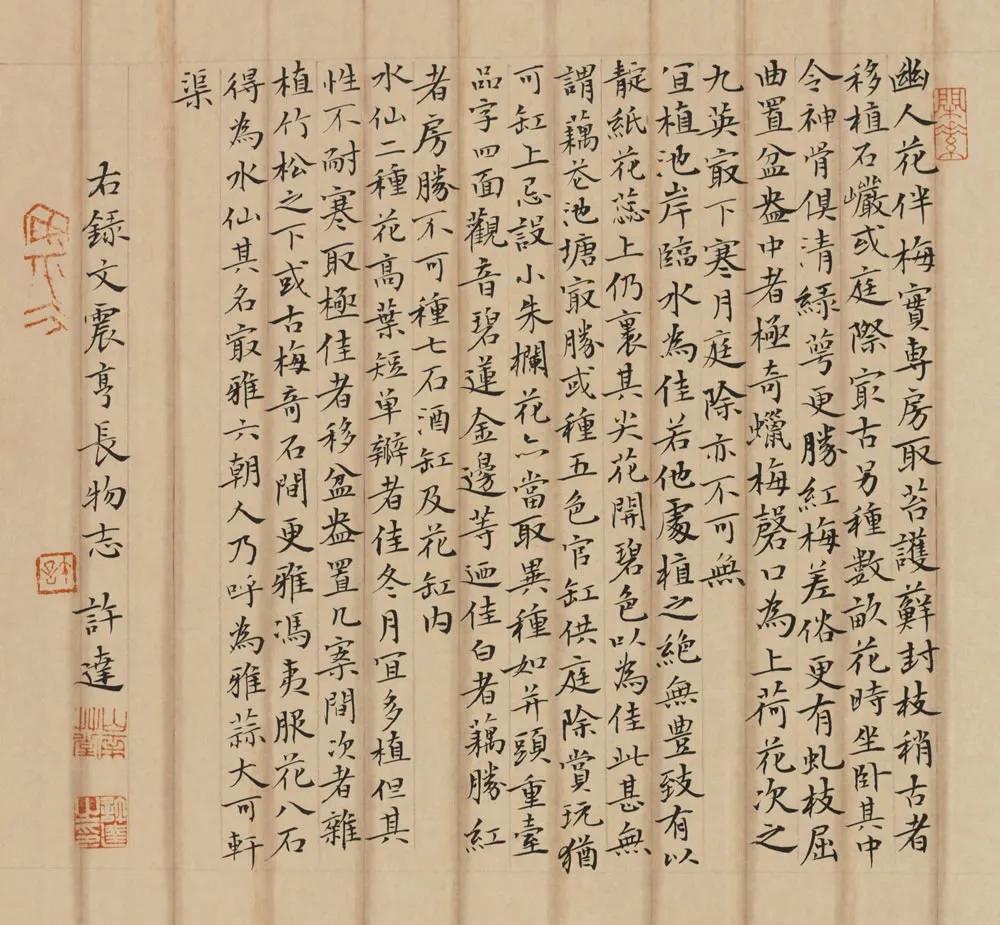 幽人花伴梅實専房取苔護蘚封枝稍古者
移植石巖或庭際寂古另種數畝花時坐卧其中
令神骨俱清緑萼更勝紅梅差俗更有虬枝屈
曲置盆盎中者極奇蠟梅磬口為上荷花次之
九英寂下寒月庭除亦不可無
冝植池岸臨水為佳若他處植之絶無豊致有以
靛紙花蕊上仍裹其尖花開碧色以為佳此甚無
謂藕花池塘寂勝或種五色官缸供庭除賞玩猶
可缸上忌設小朱欄花亦當取異種如并頭重臺
品字四面觀音碧蓮金邊等迺佳白者藕勝紅
者房勝不可種七石酒缸及花缸内
水仙二種花高葉短单瓣者佳冬月冝多植但其
性不耐寒取極佳者移盆盎置几案間次者雜
植竹松之下或古梅奇石間更雅馮夷服花八石
得為水仙其名寂雅六朝人乃呼為雅蒜大可軒
渠
右録文震亨長物志 許達